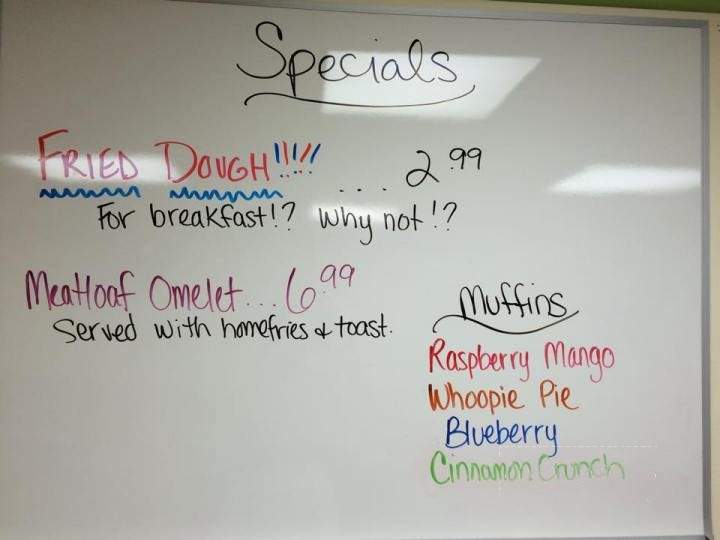 Specials
FRIED DOUGH!!!!! .... 2.99
For breakfast!? Why not!?
Meatloaf Omelet... 6.99
Served with homefries & toast.
Muffins
Raspberry Mango
Whoopie Pie
Blueberry
Cinnamon Crunch